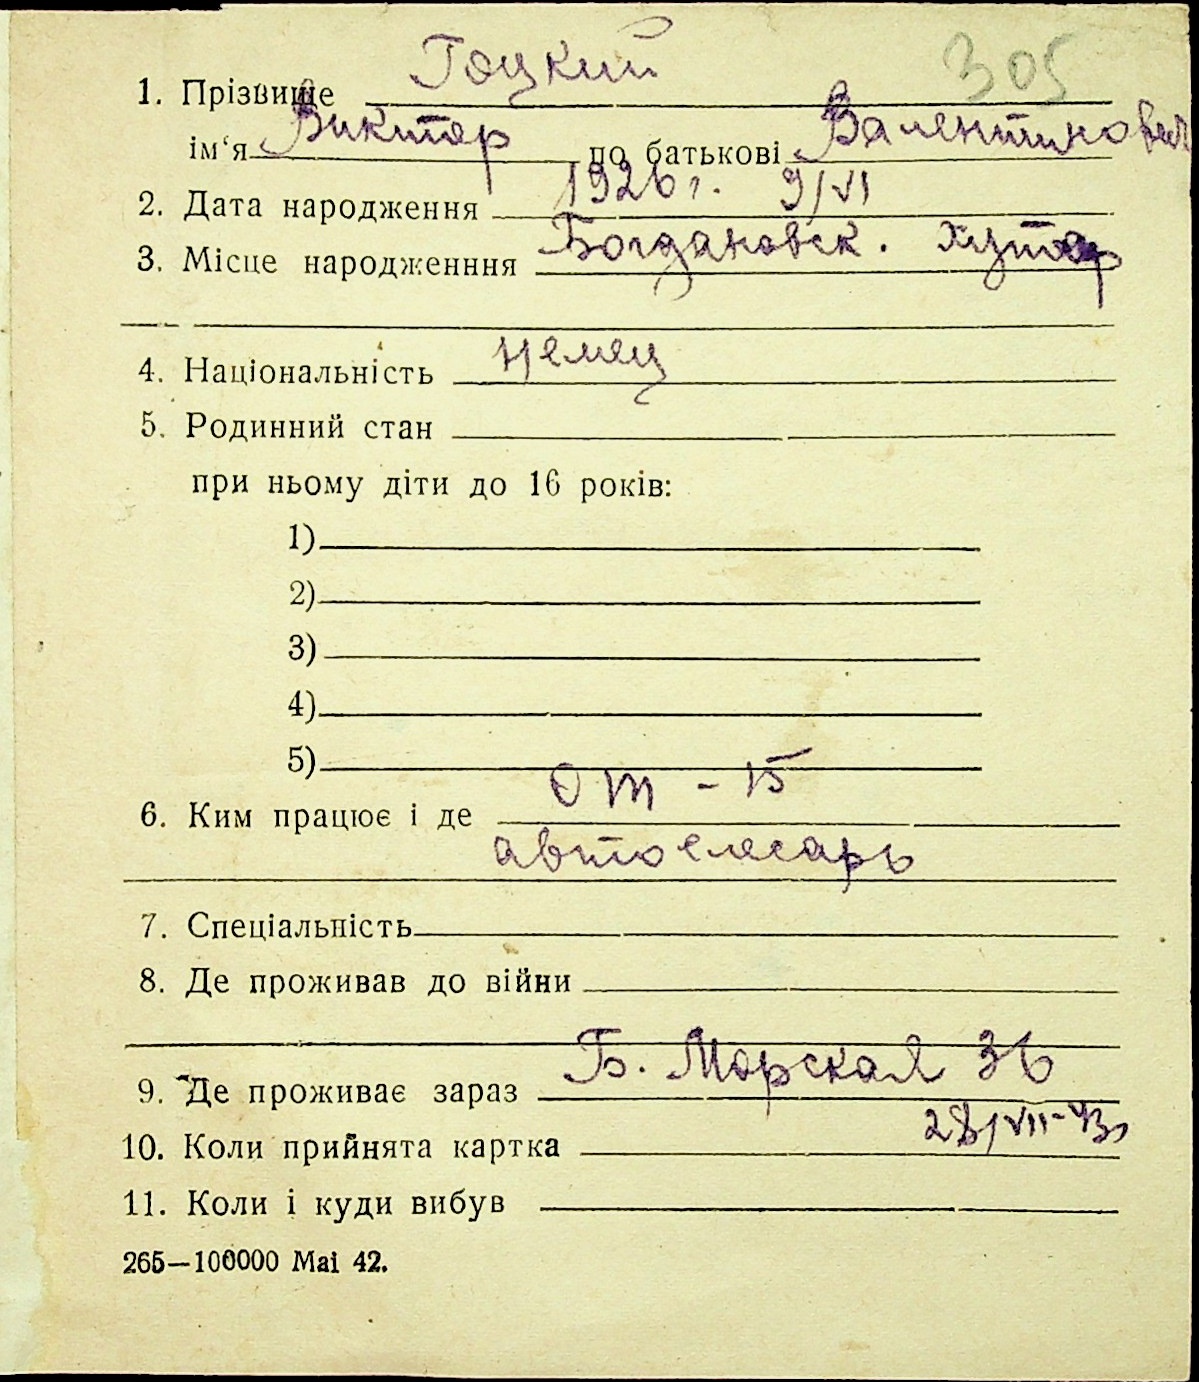 305
1. Прізвище Гоцкий
ім‘я Виктор по батькові Валентинович
2. Дата народження 1926 г. 9/VI
3. Місце народженння Богдановск. хутор
4. Національність немец
5. Родинний стан
при ньому діти до 16 років:
1)
2)
3)
4)
5)
6. Ким працює і де ОТ - 15
автослесарь
7. Спеціальність
8. Де проживав до війни
9. Де проживає зараз Б. Морская 36
10. Коли прийнята картка 28/VII-43
11. Коли і куди вибув
265—100000 Mai 42.